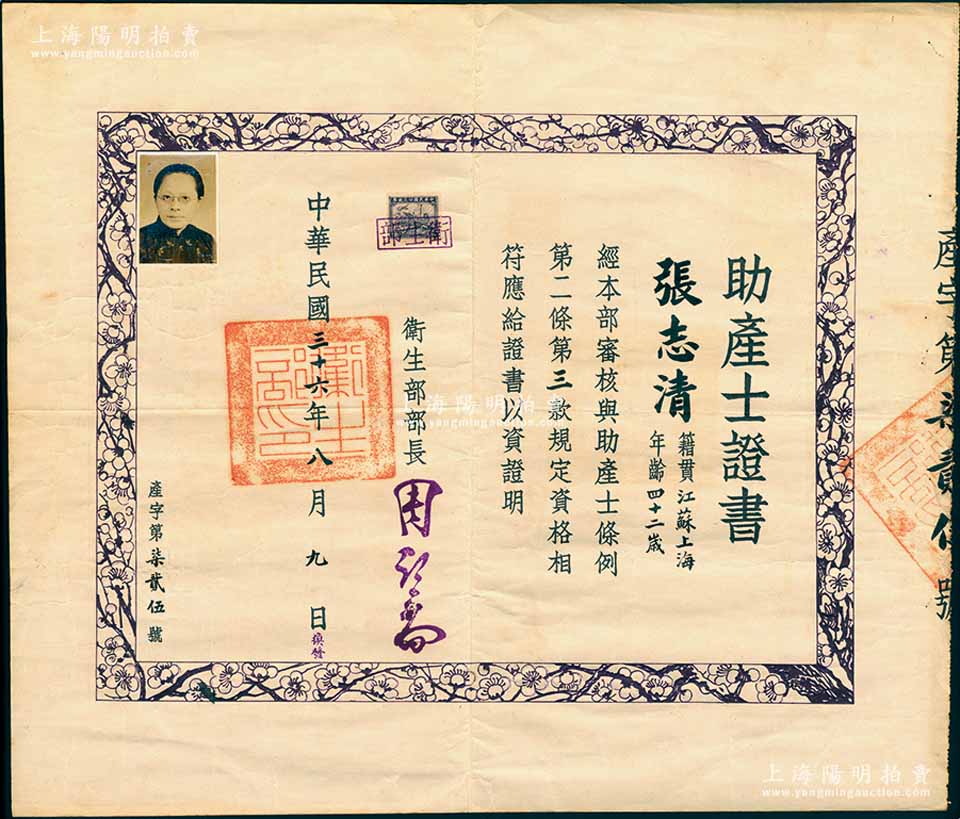 上海陽明拍賣
www.yangmingauction.com
產字第柒貳伍號
助產士證書
張志清
籍貫江蘇上海
年齡四十二歲
經本部審核與助產士條例
第二條第三款規定資格相
符應給證書以資證明
衛生部
衛生部部長
周詒春
中華民國三十六年八月九日
換發
衛生部印
產字第柒貳伍號
上海陽明拍賣
www.yangmingauction.com
上海陽明拍賣
www.yangmingauction.com